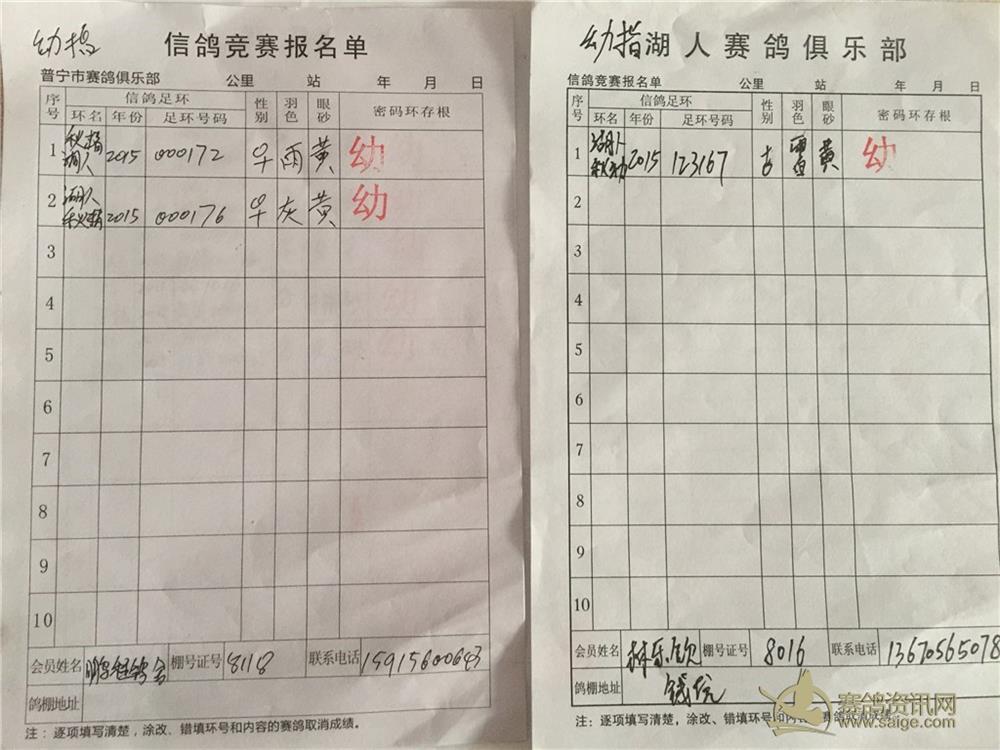 幼指
信鸽竞赛报名单
普宁市赛鸽俱乐部 公里 站 年 月 日
序号 信鸽足环 性别 羽色 眼砂 密码环存根
环名 年份 足环号码
1 秋指湖人 2015 000172 雨 黄 幼
2 湖人秋指 2015 000176 灰 黄 幼
3
4
5
6
7
8
9
10
会员姓名 棚号证号 8118 联系电话 15915600643
鸽棚地址
注：逐项填写清楚，涂改、错填环号和内容的赛鸽取消成绩。
幼指 湖人赛鸽俱乐部
信鸽竞赛报名单 公里 站 年 月 日
序号 信鸽足环 性别 羽色 眼砂 密码环存根
环名 年份 足环号码
1 湖人 2015 123167 黄 幼
2
3
4
5
6
7
8
9
10
会员姓名 林乐欣 棚号证号 8016 联系电话 13670565078
鸽棚地址
注：逐项填写清楚，涂改、错填环号和内容的赛鸽取消成绩
赛鸽资讯网
www.saige.com